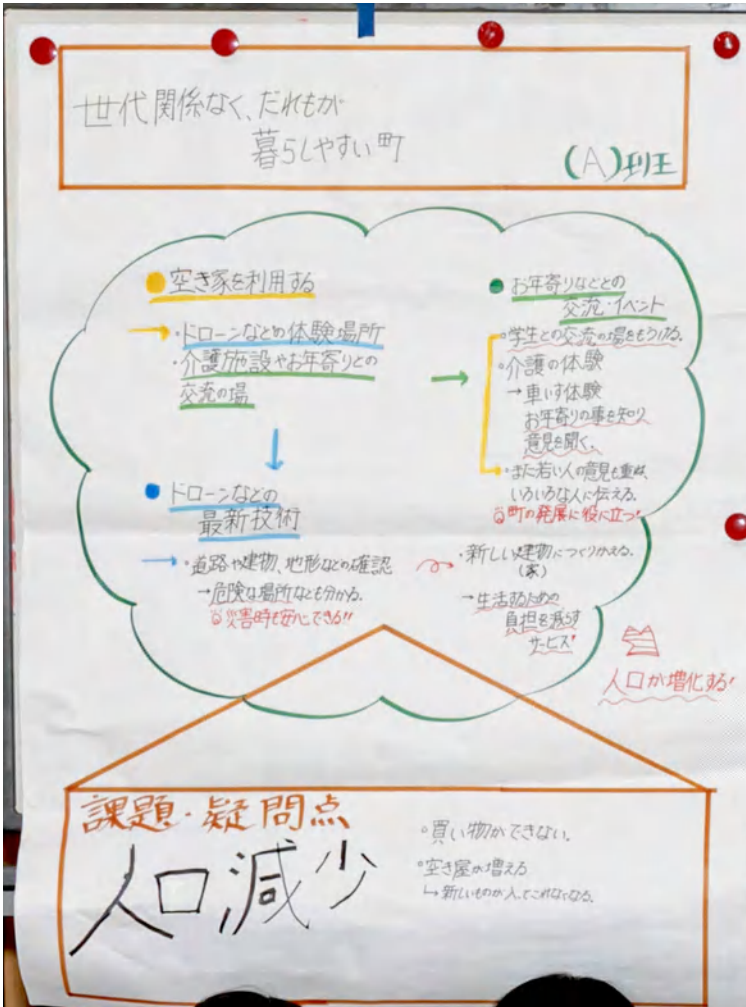 世代関係なく、だれもが
暮らしやすい町
(A)班
●空き家を利用する
→・ドローンなどの体験場所
・介護施設やお年寄りとの
交流の場
→
↓
●ドローンなどの
最新技術
→・道路や建物、地形などの確認
→危険な場所なども分かる。
災害時も安心できる!!
●お年寄りなどとの
交流・イベント
・学生との交流の場をもうける。
・介護の体験
→車いす体験
お年寄りの事を知り
意見を聞く。
・また若い人の意見も重ね、
いろいろな人に伝える。
町の発展に役に立つ!
・新しい建物につくりかえる。
(家)
→生活するための
負担を減らす
サービス!
人口が増化する!
課題・疑問点
人口減少
・買い物ができない。
・空き屋が増える
↳新しいものが入ってこれなくなる。